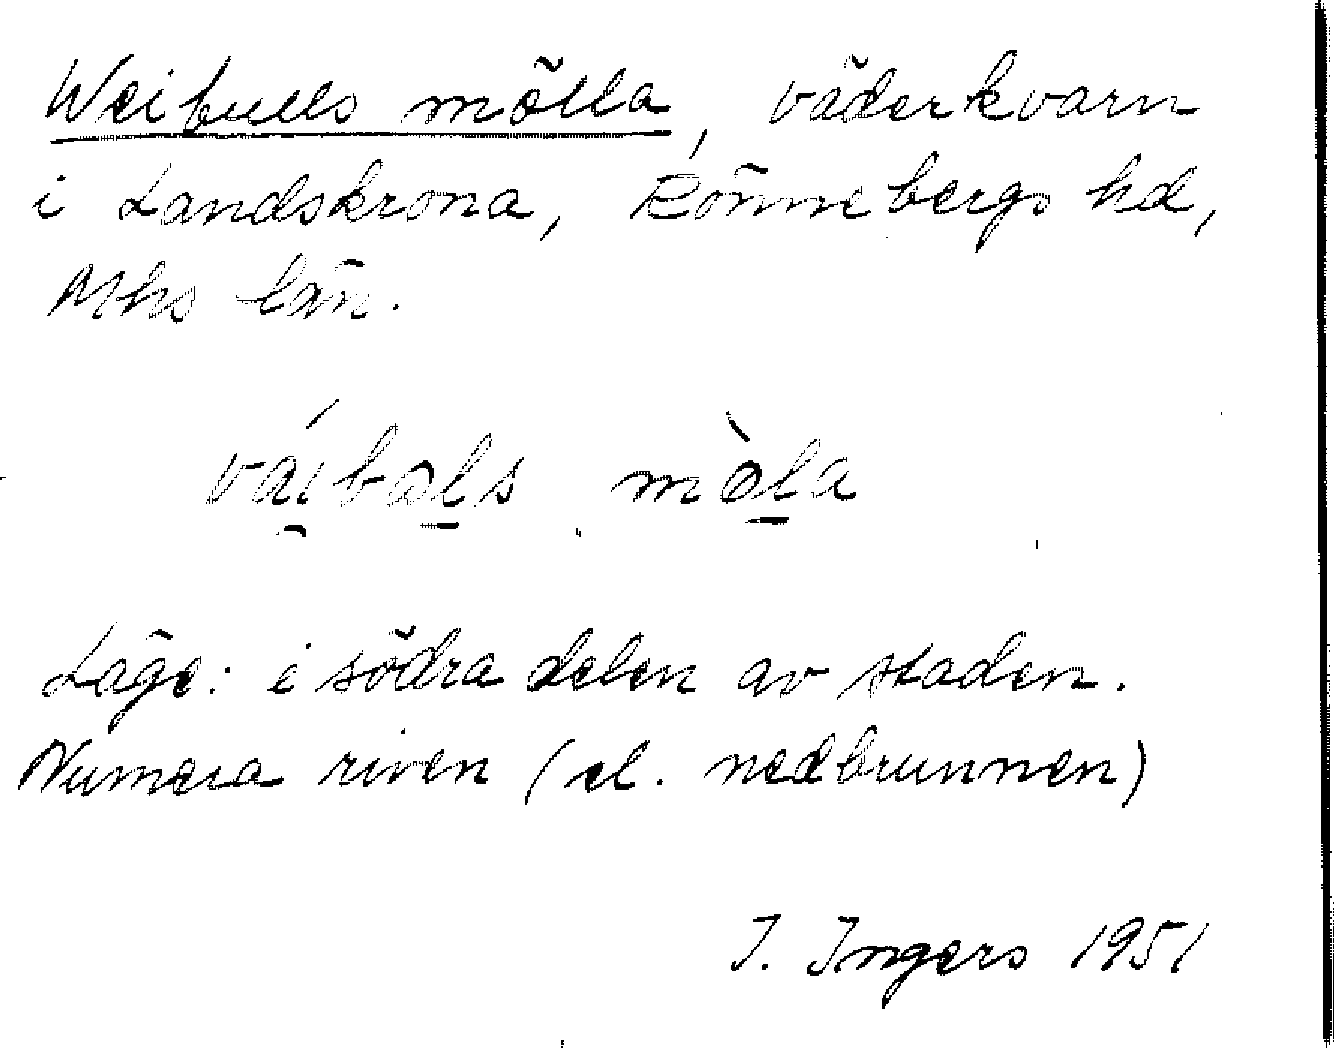 Weibulls mölla, väderkvarn
i Landskrona, Rönnebergs hd,
Mhs län.
vái̯bəl̲s mòl̲a
Läge: i södra delen av staden.
Numera riven (el. nedbrunnen)
I. Ingers 1951